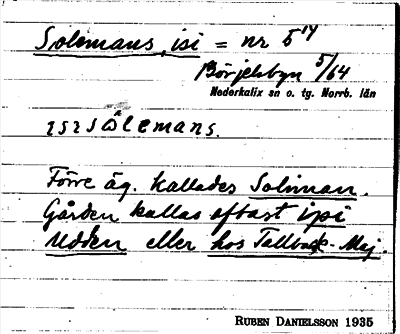 Solomans, isi = nr 5¹⁴
Börjelsbyn 5/64
Nederkalix sn o. tg. Norrb. län
Förre äg. kallades Soliman.
Gården kallas oftast ipi
Udden eller hos Tallback-Maj.
RUBEN DANIELSSON 1935